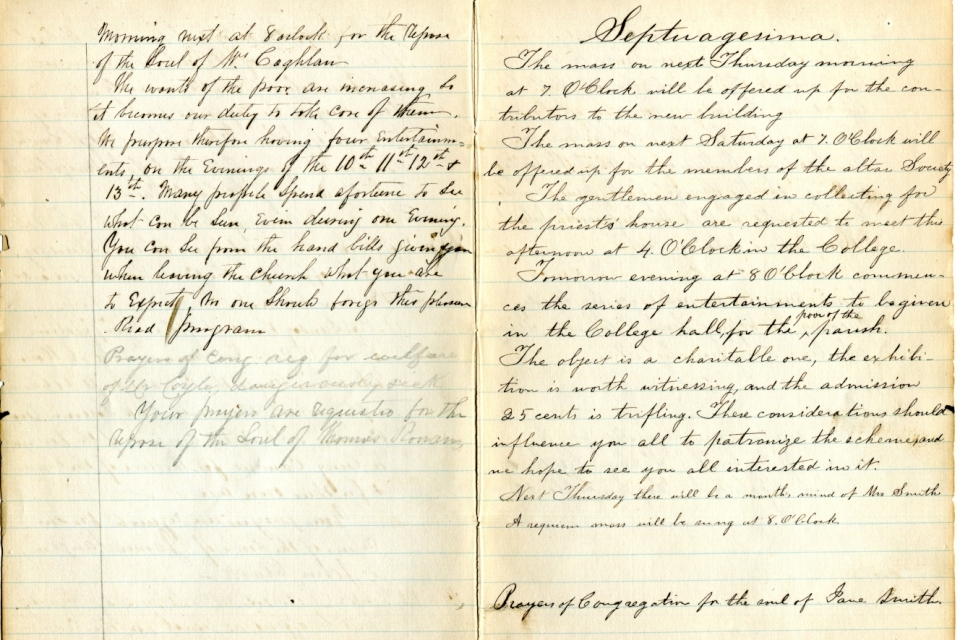 Morning next at 8 oclock for the repose
of the Soul of Mrs Coghlan
The wants of the poor are increasing So
it becomes our duty to take care of them.
We purpose therefore having four Entertainm-
ents, on the Evenings of the 10th 11th 12th &
13th. Many people Spend a fortune to See
what can be Seen, Even during one Evening.
You can See from the hand bills given you
when leaving the church what you are
to Expect. No one Should forego this pleasure
Read Programm
Prayers of Cong. req for welfare
of Mr Coyle, dangerously sick
Your prayers are requested for the
repose of the Soul of Thomas
Septuagesima.
The mass on next Thursday morning
at 7. O'Clock will be offered up for the con-
tributors to the new building
The mass on next Saturday at 7. O'Clock will
be offered up for the members of the altar Society
The gentlemen engaged in collecting for
the priests' house are requested to meet this
afternoon at 4. O'Clock in the College.
Tomorrow evening at 8 O'Clock commen-
ces the series of entertainments to be given
in the College hall, for the poor of the parish.
The object is a charitable one, the exhibi-
tion is worth witnessing, and the admission
25 cents is trifling. These considerations should
influence you all to patronize the scheme, and
we hope to see you all interested in it.
Next Thursday there will be a month's mind of Mrs Smith
A requiem mass will be sung at 8. O'Clock.
Prayers of Congregation for the soul of Jane Smith.